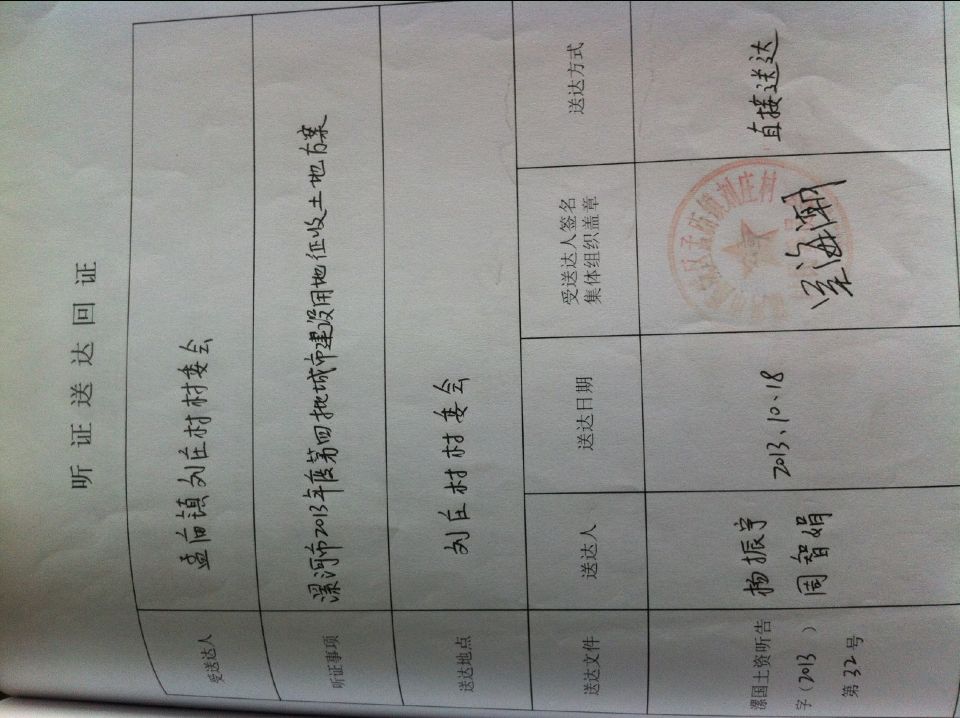 听证送达回证
受送达人 孟庙镇刘庄村村委会
听证事项 漯河市2013年度第四批城市建设用地征收土地方案
送达地点 刘庄村村委会
送达文件 送达人 送达日期 受送达人签名 送达方式
集体组织盖章
漯国土资听告
字(2013)
第32号
杨振宇
周智娟
2013、10、18
孟庙镇刘庄村
海潮
直接送达